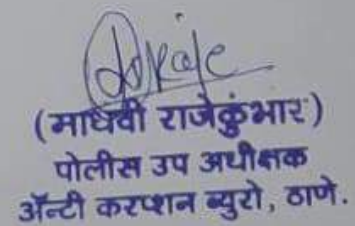 (माधवी राजेकुंभार)
पोलीस उप अधीक्षक
ॲन्टी करप्शन ब्युरो, ठाणे.